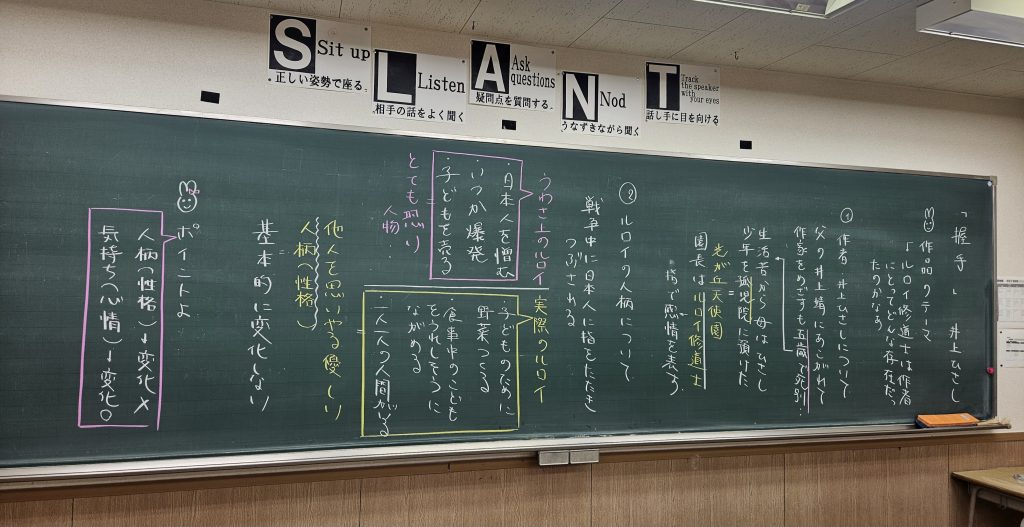 S Sit up
・正しい姿勢で座る。
L Listen
相手の話をよく聞く
A Ask questions
疑問点を質問する。
N Nod
うなずきながら聞く
T Track the speaker with your eyes
話し手に目を向ける
「握手」 井上ひさし
作品のテーマ
「ルロイ修道士は作者
にとってどんな存在だっ
たのかな?
① 作者・井上ひさしについて
父の井上靖にあこがれて
作家をめざすも五歳で死別…
生活苦から母はひさし
少年を孤児院に預けた。
光が丘天使園
園長はルロイ修道士
指で感情を表す
② ルロイの人柄について
戦争中に日本人に指をたたき
つぶされる
うわさ上のルロイ
・日本人を憎む
・いつか爆発
・子どもを売る
とても恐い
人物・
実際のルロイ
・子どものために
野菜つくる
・食事中のこども
をうれしそうに
ながめる
・一人一人の人間がいる
他人を思いやる優しい
人柄(性格)
基本的に変化しない
ポイントよ
人柄(性格)→変化×
気持ち(心情)→変化○